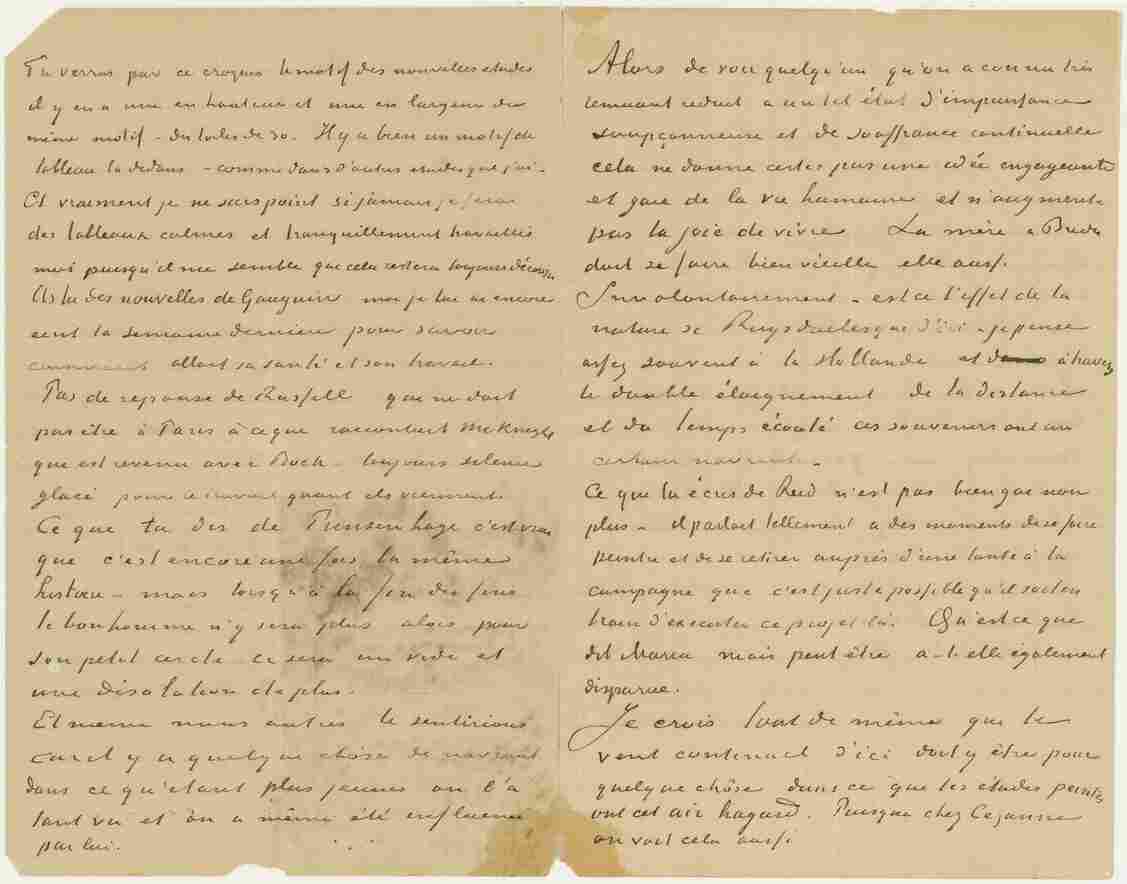 Tu verras par ce croquis le motif des nouvelles etudes
il y en a une en hauteur et une en largeur du
même motif – des toiles de 30. Il y a bien un motif de
tableau la dedans – comme dans d'autres etudes que j'ai –
Et vraiment je ne sais point si jamais je ferai
des tableaux calmes et tranquillement travaillés
moi puisqu'il me semble que cela restera toujours décousu
As tu des nouvelles de Gauguin moi je lui ai encore
ecrit la semaine dernière pour savoir
comment allait sa santé et son travail.
Pas de reponse de Russell que ne doit
pas être à Paris à ce que racontait McKnight
que est revenu avec Boch – toujours silence
glacé pour le travail quant ils viennent
Ce que tu dis de Tiensenhage c'est vrai
que c'est encore une fois la même
histoire – mais lorsqu'à la fin des fins
le bonhomme n'y sera plus alors pour
son petit cercle ce sera un vide et
une désolation de plus.
Et meme nous autres le sentirions
car il y a quelque chôse de navrant
dans ce qu'étant plus jeunes on l'a
tant vu et ôn a même été influencé
par lui.
Alors de voir quelqu'un qu'on a connu très
remuant reduit a un tel état d'impuissance
soupçonneuse et de souffrance continuelle
cela ne donne certes pas une idée engageante
et gaie de la vie humaine et n'augmente
pas la joie de vivre La mère a Breda
doit se faire bien vieille elle aussi.
Involontairement – est ce l'effet de la
nature si Ruysdaelesque d'ici – je pense
assez souvent à la Hollande et à travers
le double éloignement de la distance
et du temps écoulé ces souvenirs ont un
certain navrant –
Ce que tu écris de Reid n'est pas bien gai non
plus – il parlait tellement a des moments de se faire
peintre et de se retirer auprès d'une tante à la
campagne que c'est juste possible qu'il soit en
train d'executer ce projet là. Qu'est ce que
dit Maria mais peut être a-t-elle également
disparue.
Je crois tout de même que le
vent continuel d'ici doit y être pour
quelque chôse dans ce que les études peintes
ont cet air hagard. Puisque chez Cezanne
on voit cela aussi.